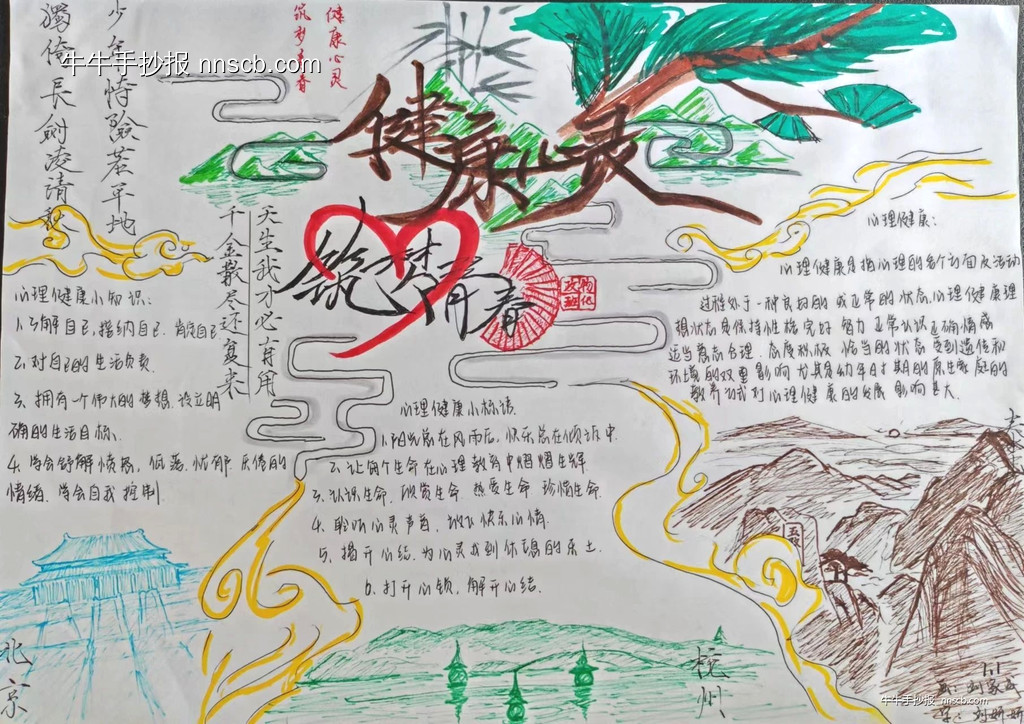 少年恃險若平地
獨倚長劍凌清秋
牛牛手抄报 nnscb.com
健康心灵
筑梦青春
健康心灵
筑梦青春
天生我才必有用
千金散尽还复来
心理健康小知识:
1.了解自已,接纳自已.
2.对自己的生活负责.
3.拥有一个伟大的梦想.设立明
确的生活目标.
4.学会纾解愤怒,低落.忧郁.厌倦的
情绪.学会自我控制.
心理健康小标语.
1.阳光总在风雨后,快乐总在倾诉中.
2.让每个生命在心理教育中熠熠生辉.
3.认识生命.欣赏生命.热爱生命.珍惜生命.
4.聆听心灵声音.放飞快乐心情.
5.揭开心结.为心灵找到休憩的乐土.
6.打开心锁,解开心结.
心理健康:
心理健康是指心理的各个方面及活动
过程处于一种良好的或正常的状态.心理健康理
想状态是保持性格完好 智力正常认识正确情感
适当意志合理.态度积极 恰当的状态 受到遗传和
环境的双重影响 尤其是幼年时期的原生家庭的
教养方式对心理健康的发展影响甚大.
北京
杭州
牛牛手抄报 nnscb.com